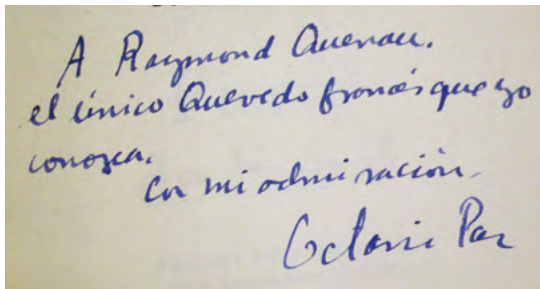 A Raymond Queneau.
el único Quevedo francés que yo
conozca.
Con mi admiración.
Octavio Paz